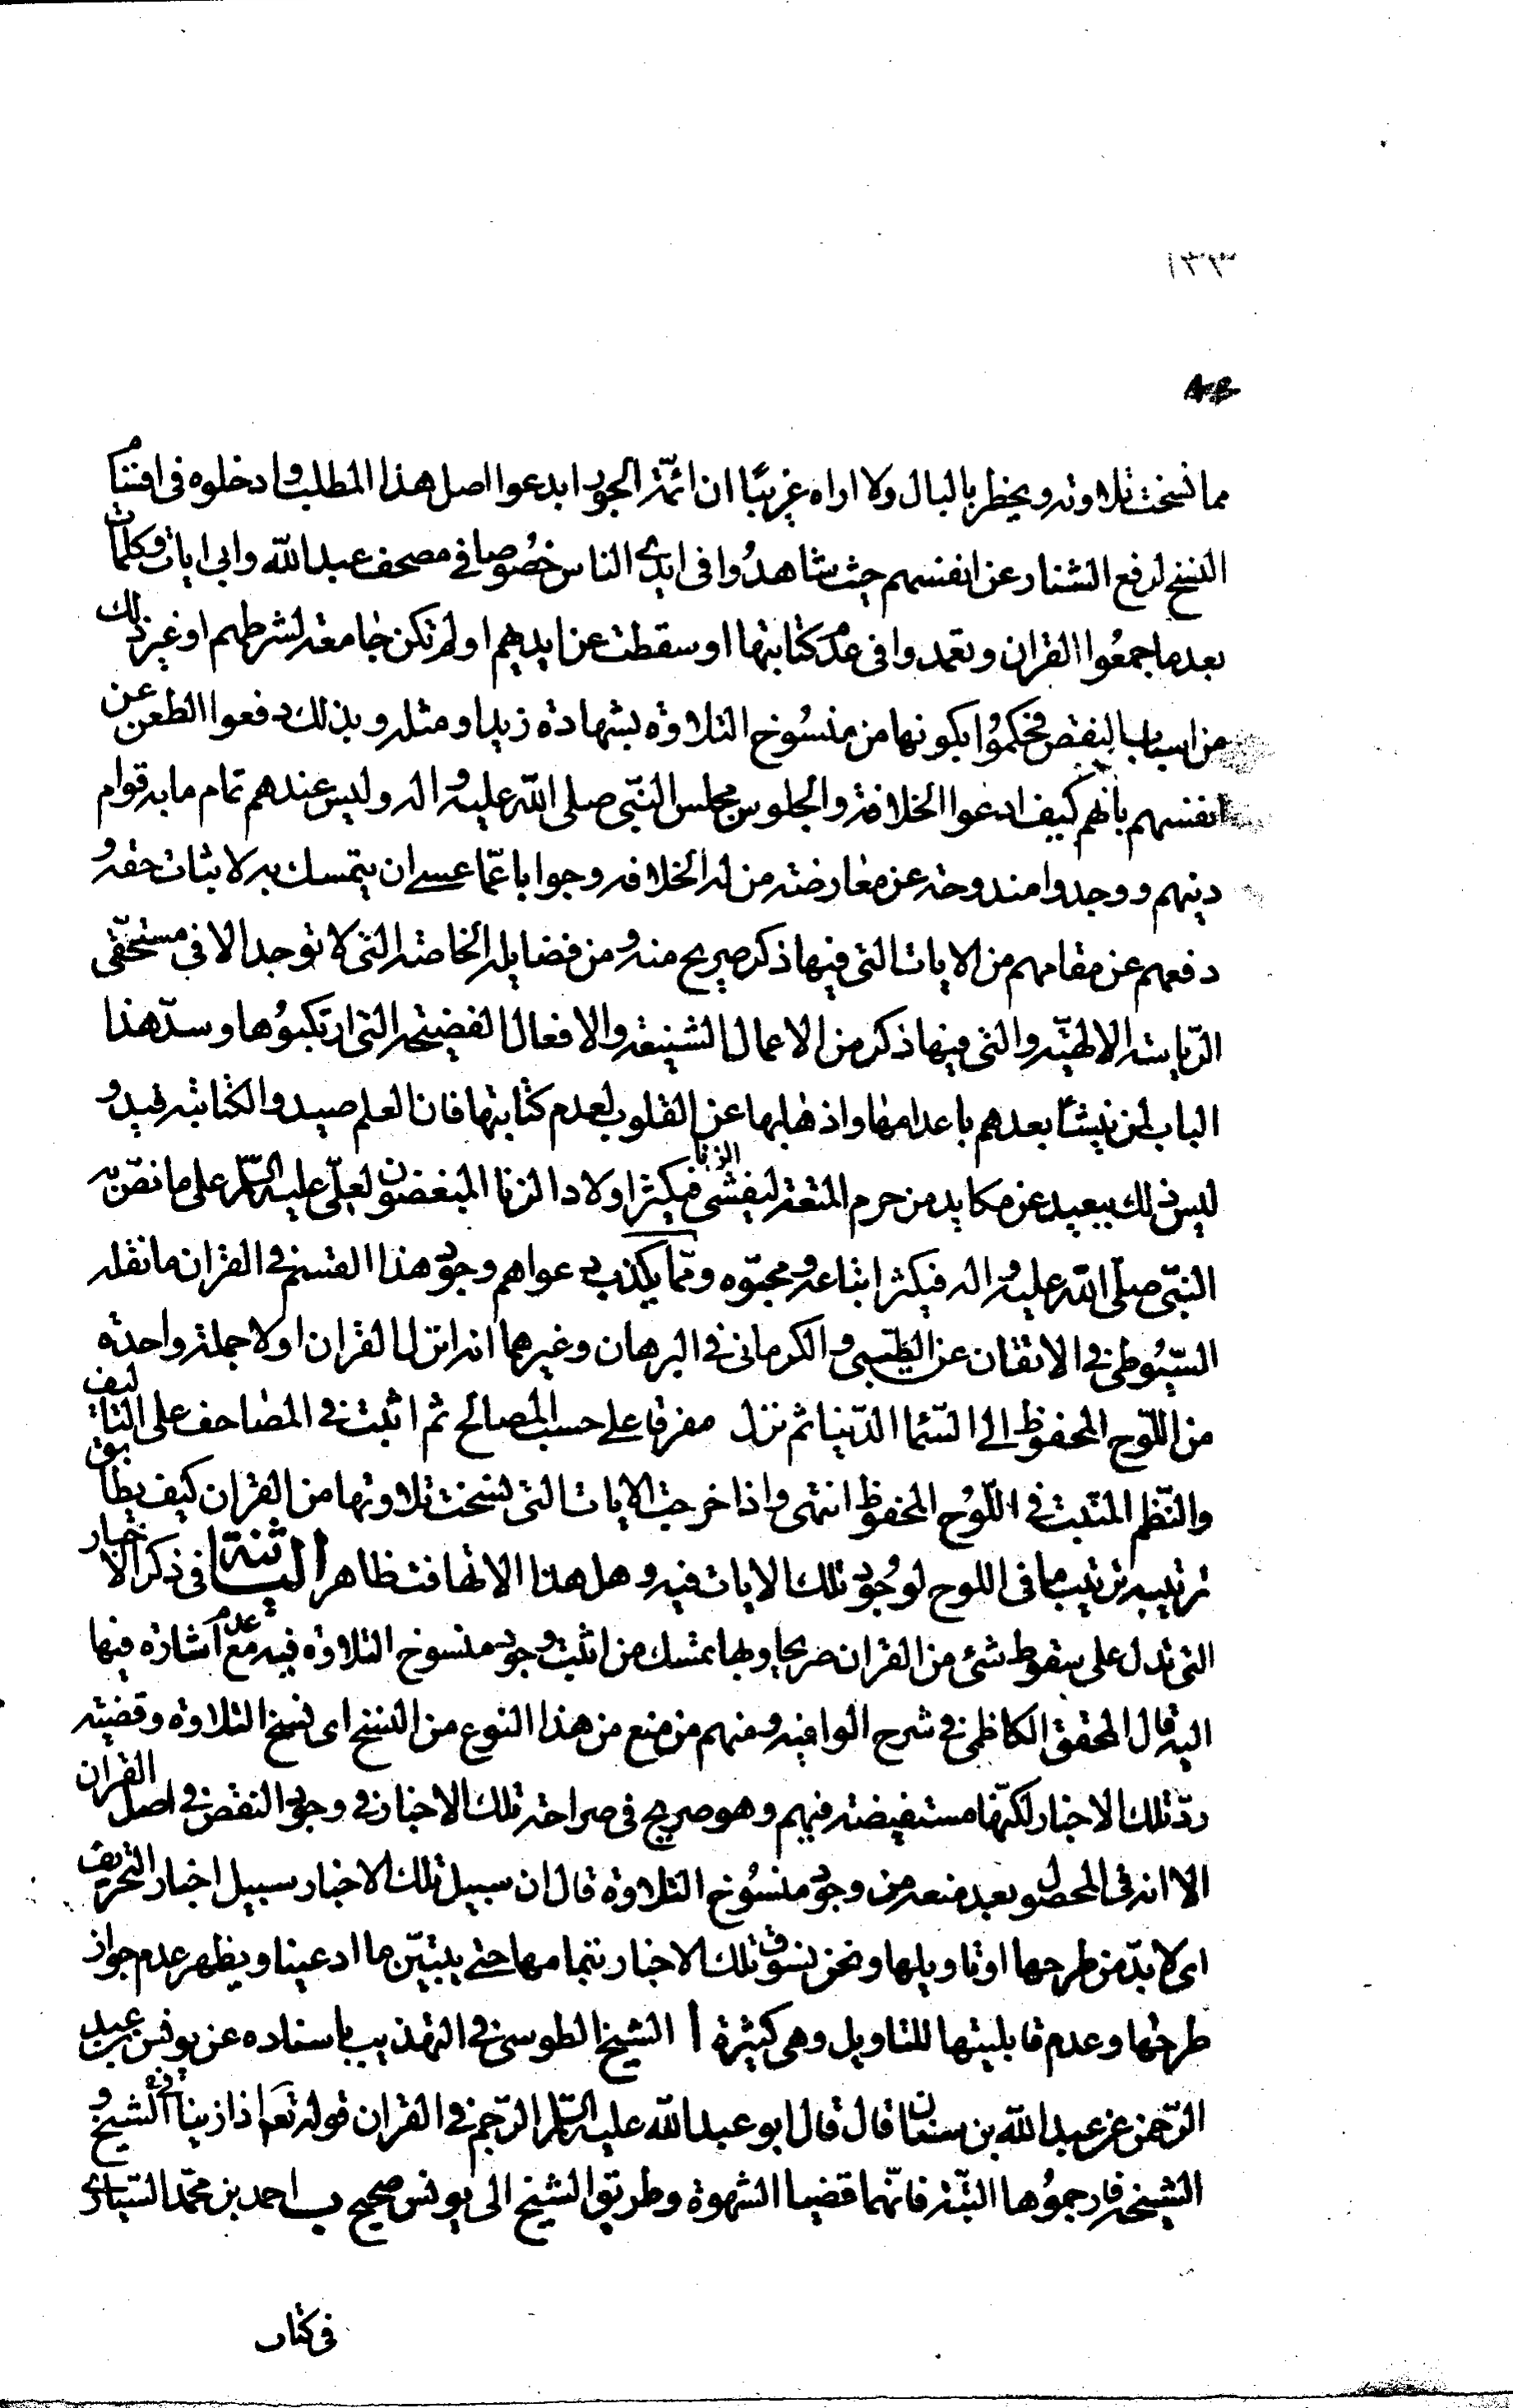 ١٣٣
مما نسخت تلاوته ويخطر بالبال ولا اراه غريبًا ان ائمّة الجور ابدعوا اصل هذا المطلب وادخلوه فى اقسام
النسخ لدفع الشنار عن انفسهم حيث شاهدُوا فى ايدى الناس خصُوصا فى مصحف عبد الله وابى ايات وكلمات
بعد ما جمعُوا القران وتعمدوا فى عدم كتابتها او سقطت عن ايديهم او لم تكن جامعة لشرطهم او غير ذلك
من اسباب النقص فحكموُا بكونها من منسُوخ التلاوة بشهادة زيد او مثله وبذلك دفعوا الطعن عن
انفسهم بانهم كيف ادعوا الخلافة والجلوس مجلس النبّى صلى الله عليه واله وليس عندهم تمام ما به قوام
دينهم ووجدوا مندوحة عن معارضة من له الخلافه وجوابا عمّا عسى ان يتمسك به لاثبات حقه و
دفعهم عن مقامهم من الايات التى فيها ذكر صريح منه ومن فضايله الخاصة التى لا توجد الا فى مستحقّى
الرّياسة الالهيّه والتى فيها ذكر من الاعمال الشنيعة والافعال الفضيحة التى ارتكبوُها وسدّ هذا
الباب لمن ينشأ بعدهم باعدامها واذهابها عن القلوب لعدم كتابتها فان العلم صيد والكتابة قيد و
ليس ذلك ببعيد عن مكايد من حرم المتعة ليفشى الزنا فيكثر اولاد الزنا المبغضون لعلّى عليه السّلم على ما نصّ به
النبّى صلّى الله عليه واله فيكثر اتباعه ومحبّوه وممّا يكذب دعواهم وجود هذا القسم فى القران ما نقله
السّيُوطى فى الاتقان عن الطّيبى والكرمانى فى البرهان وغيرهما انه انزل القران اولا جملة واحدة
من اللّوح المحفوظ الى السّماء الدّنيا ثم نزل مفرقا على حسب المصالح ثم اثبت فى المصاحف على التاليف
والنّظم المثبت فى اللّوُح المحفوظ انتهى واذا خرجت الايات التى نسخت تلاوتها من القران كيف يطابق
ترتيبه ترتيب ما فى اللوح لوُجود تلك الايات فيه وهل هذا الا تهافت ظاهر الثانية فى ذكر الاخبار
التى تدل على سقوط شئ من القران صريحا وبها تمسك من اثبت وجود منسوخ التلاوة فيه مع عدم اشارة فيها
اليه قال المحقق الكاظمى فى شرح الوافيه ومنهم من منع من هذا النوع من النسخ اى نسخ التلاوة وقضيته
ردّ تلك الاخبار لكنّها مستفيضة فيهم وهو صريح فى صراحة تلك الاخبار فى وجود النقص فى اصل القران
الا انه فى المحصول بعد منعه من وجود منسُوخ التلاوة قال ان سبيل تلك الاخبار سبيل اخبار التحريف
اى لا بدّ من طرحها او تاويلها ونحن نسوق تلك الاخبار بتمامها حتى يتبيّن ما ادعينا ويظهر عدم جواز
طرحها وعدم قابليتها للتاويل وهى كثيرة ا الشيخ الطوسى فى التهذيب باسناده عن يونس بن عبد
الرّحمن عن عبد الله بن سنان قال قال ابو عبد الله عليه السّلم الرّجم فى القران قوله تعم اذا زينا الشيخ و
الشيخة فارجموُها البتّة فانّهما قضيا الشهوة وطريق الشيخ الى يونس صحيح ب احمد بن محمّد السّيارى
فى كتاب